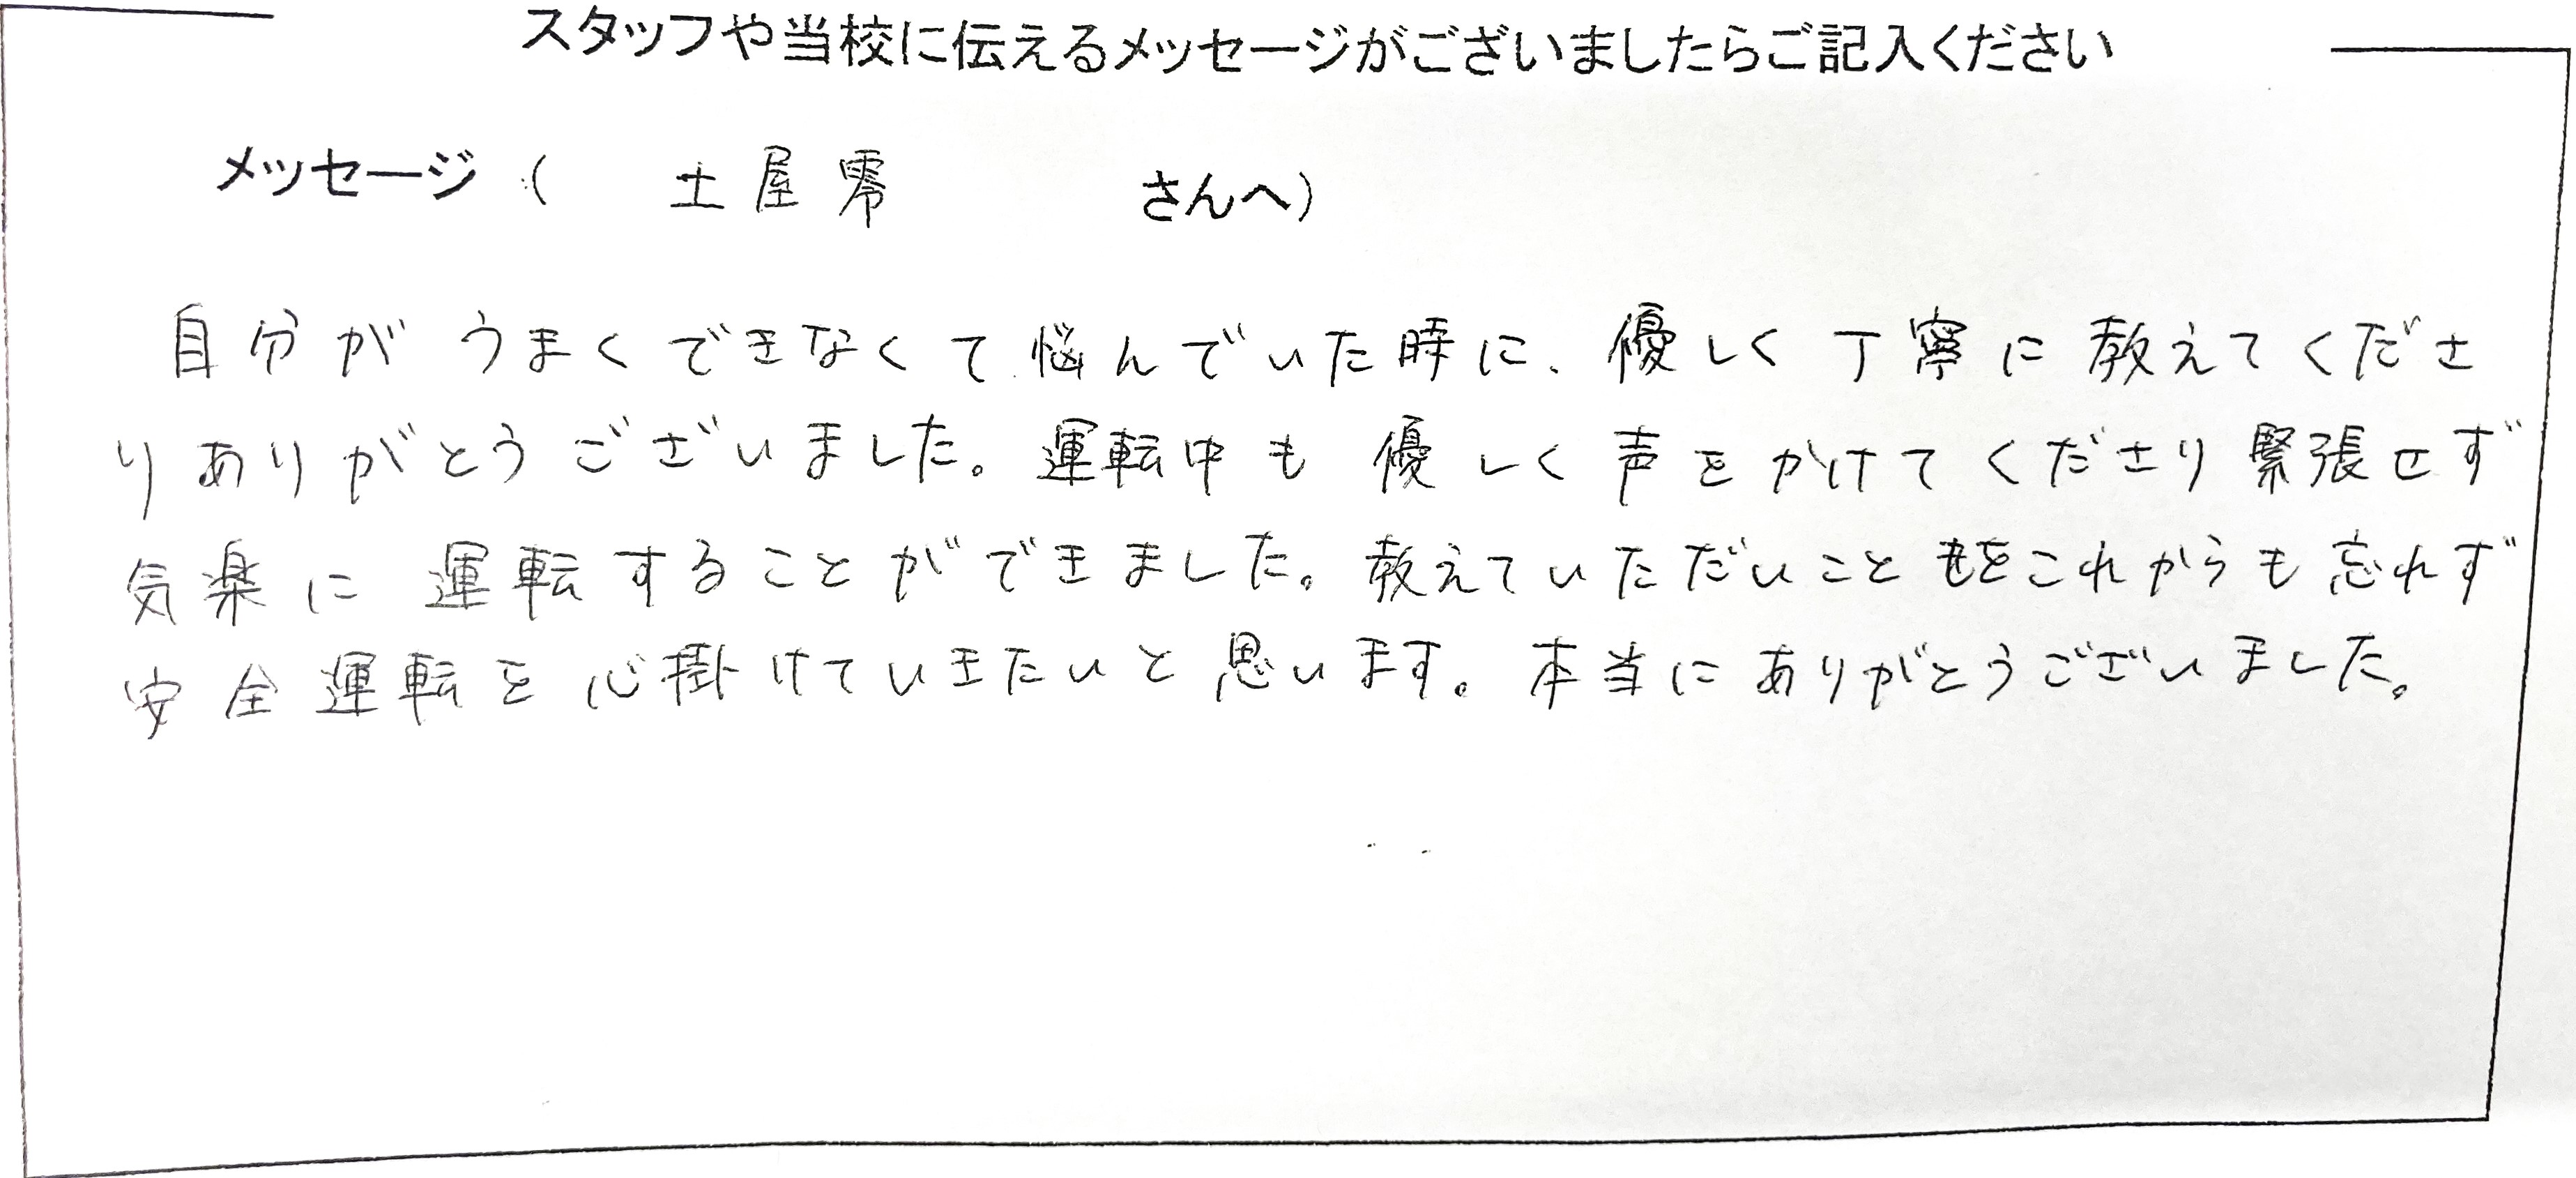 スタッフや当校に伝えるメッセージがございましたらご記入ください
メッセージ（ 土屋零 さんへ）
自分がうまくできなくて悩んでいた時に、優しく丁寧に教えてくださ
りありがとうございました。運転中も優しく声をかけてくださり緊張せず
気楽に運転することができました。教えていただいことをこれからも忘れず
安全運転を心掛けていきたいと思います。本当にありがとうございました。